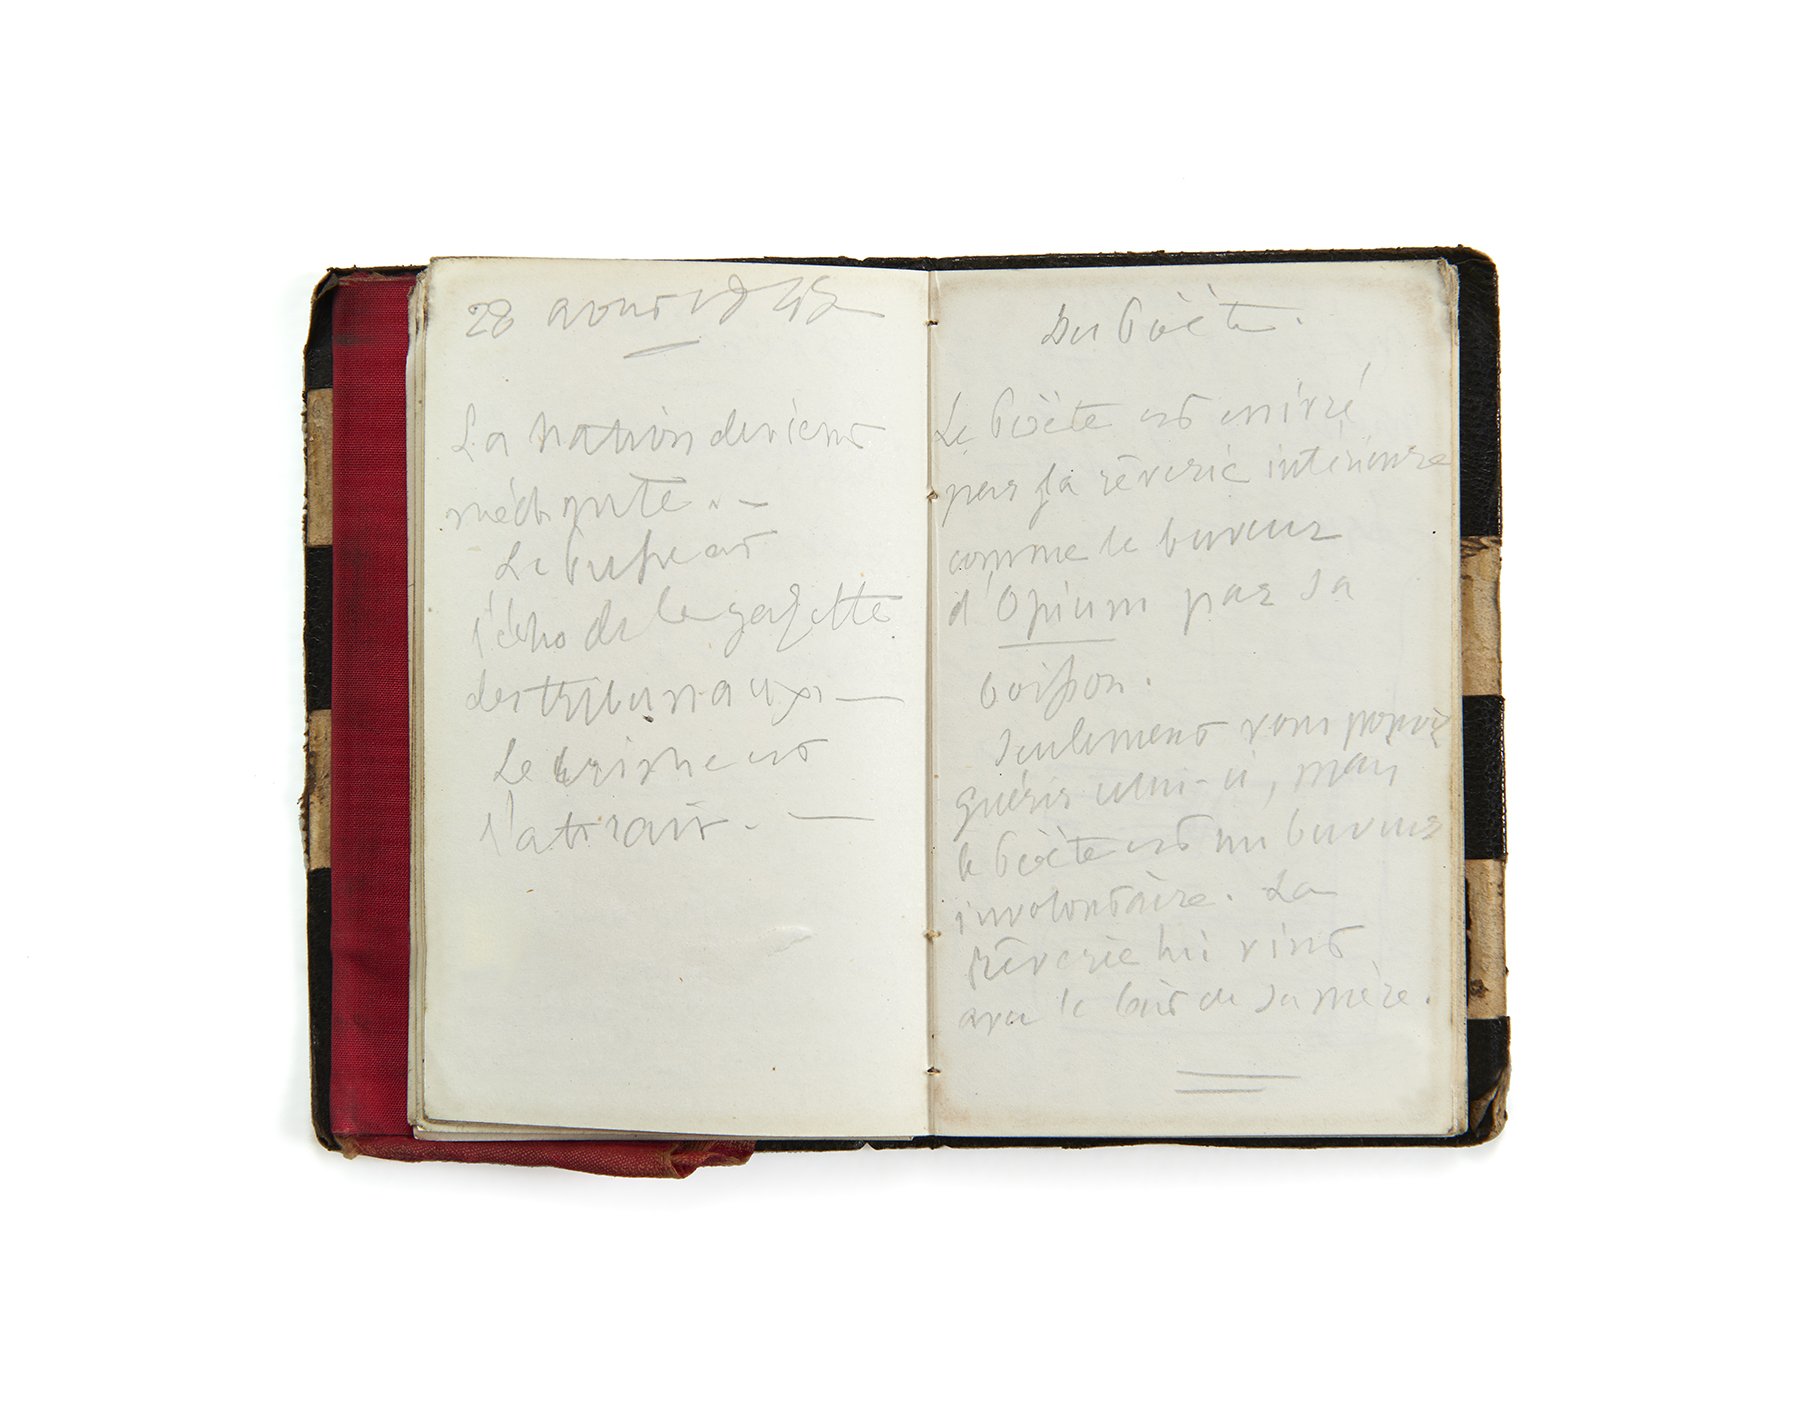 28 aout 1845
La nation devient
méchante. —
Le buste est
l'écho de la gazette
des tribunaux —
Le crime est
l'attrait. —
Du Poëte.
Le Poëte est enivré
par la rêverie intérieure
comme le buveur
d'Opium par sa
boisson.
Seulement vous pouvez
guérir celui-ci, mais
le Poëte est un buveur
involontaire. La
rêverie lui vint
avec le lait de sa mère.